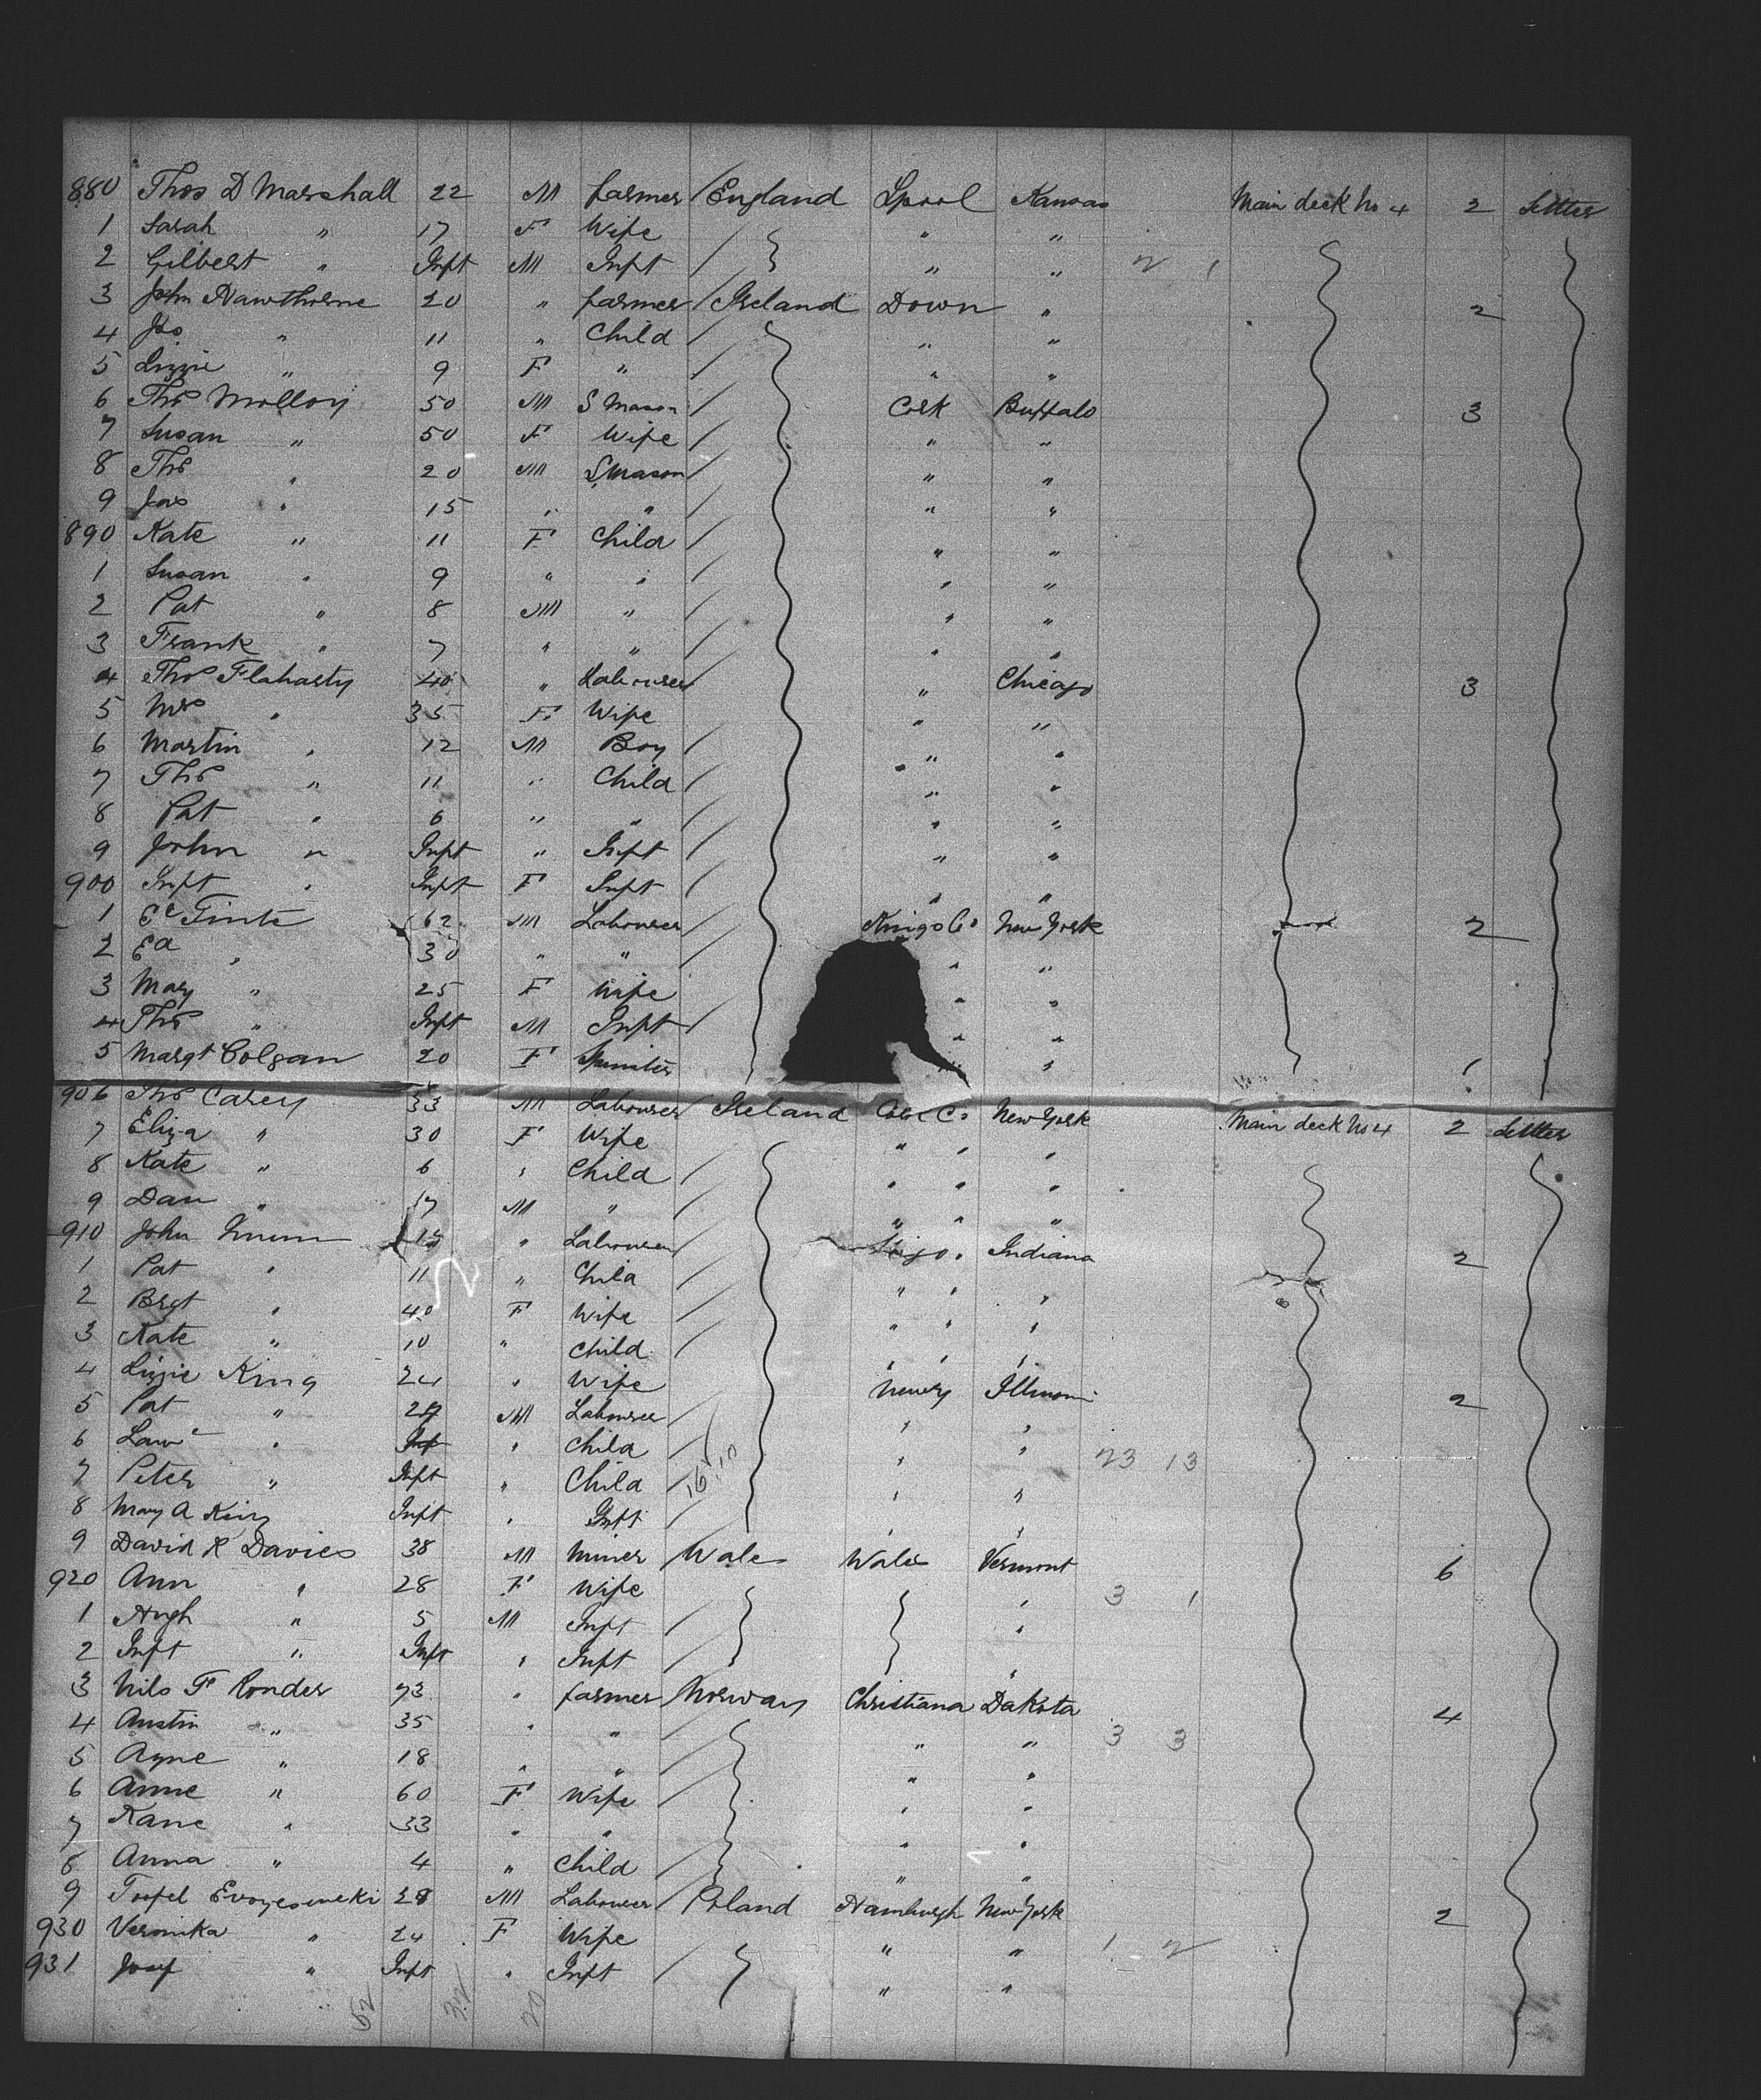 880 Thos D Marshall 22 M farmer England Lpool Kansas Main deck No 4 2 Settler
1 Sarah " 17 F Wife " "
2 Gilbert " Inft M Inft " " 2 1
3 John Hawthorne 20 " farmer Ireland Down " 2
4 Jas " 11 " Child " "
5 Lizzie " 9 F " " "
6 Thos Molloy 50 M S Mason Cork Buffalo 3
7 Susan " 50 F Wife " "
8 Thos " 20 M S Mason " "
9 Jas " 15 " " " "
890 Kate " 11 F Child " "
1 Susan " 9 " " " "
2 Pat " 8 M " " "
3 Frank " 7 " " " "
4 Thos Flaharty 40 " Labourer " Chicago 3
5 Mrs " 35 F Wife " "
6 Martin " 12 M Boy " "
7 Thos " 11 " Child " "
8 Pat " 6 " " " "
9 John " Inft " Inft " "
900 Inft " Inft F Inft " "
1 Ed Tinte 62 M Labourer Kings Co New York 2
2 Ed " 30 " " " "
3 Mary " 25 F Wife " "
4 Thos " Inft M Inft " "
5 Margt Colgan 20 F Spinster " " 1
906 Thos Carey 33 M Labourer Ireland Co New York Main deck No 4 2 Settler
7 Eliza " 30 F Wife " " "
8 Kate " 6 " Child " " "
9 Dan " 17 M " " " "
910 John 15 " Labourer Sligo " Indiana 2
1 Pat " 11 " Child " " "
2 Brgt " 40 F Wife " " "
3 Kate " 10 " Child " " "
4 Lizzie King 24 " Wife Newry Illinois 2
5 Pat " 29 M Labourer " "
6 Lawe " Inft " Child " " 23 13
7 Peter " Inft " Child 16 10 " "
8 Mary A King Inft " Inft " "
9 David R Davies 38 M Miner Wales Wales Vermont 6
920 Ann " 28 F Wife " 3 1
1 Hugh " 5 M Inft "
2 Inft " Inft " Inft "
3 Nils F Ronder 73 " farmer Norway Christiana Dakota 4
4 Austin " 35 " " " " 3 3
5 Agne " 18 " " " "
6 Anne " 60 F Wife " "
7 Kane " 33 " " " "
8 Anna " 4 " Child " "
9 28 M Labourer Poland Hamburgh New York 2
930 Veronika " 24 F Wife " " 1 2
931 Josef " Inft " Inft " "
52 32 20